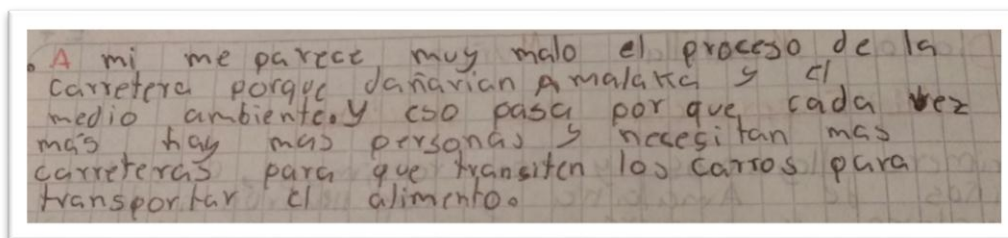 A mi me parece muy malo el proceso de la
carretera porque dañarian Amalaka y el
medio ambiente. y eso pasa por que cada vez
más hay mas personas y necesitan mas
carreteras para que transiten los carros para
transportar el alimento.